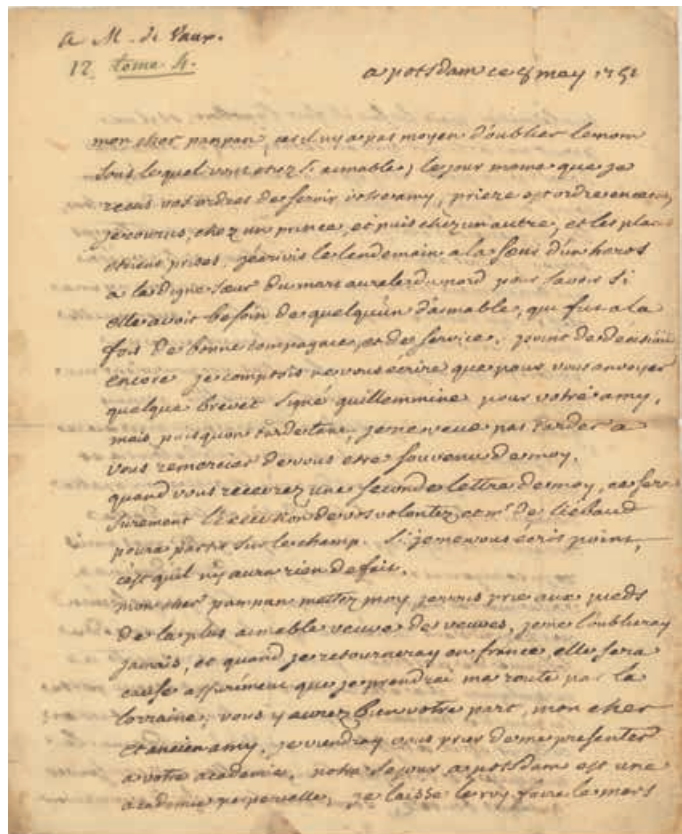 a M. de Vaux.
12 tome 4.
a potsdam ce 8 may 1751
mon cher panpan, car il n'y a pas moyen d'oublier le nom
sous le quel vous etiez si aimable; le jour meme que je
recus vos ordres de servir votre amy, priere est ordre en ce cas,
je courus, chez un prince, et puis chez un autre, et les places
etoient prises. j'ecrivis le lendemain a la soeur d'un heros
a la digne soeur du marc aurele du nord pour savoir si
elle avoit besoin de quelqu'un d'aimable, qui fut a la
fois de bonne compagnie, et de service, point de decision
encore je comptois ne vous ecrire que pour vous envoyer
quelque brevet signé guillemmine pour votre amy,
mais puisquon tarde tant, je ne veux pas tarder a
vous remercier de vous etre souvenu de moy.
quand vous recevrez une seconde lettre de moy, ce sera
surement l'execution de vos volontez et mr. de liebaud
poura partir sur le champ. si je ne vous ecris point,
c'est quil n'y aura rien de fait.
mon cher panpan mettez moy, je vous prie aux pieds
de la plus aimable veuve des veuves, je ne l'oublieray
jamais, et quand je retourneray en france elle sera
cause assurément que je prendrai ma route par la
lorraine; vous y aurez bien votre part, mon cher
et ancien amy, je viendray vous prier de me presenter
a votre academie. notre sejour a potsdam est une
academie perpetuelle, je laisse le roy faire le mars